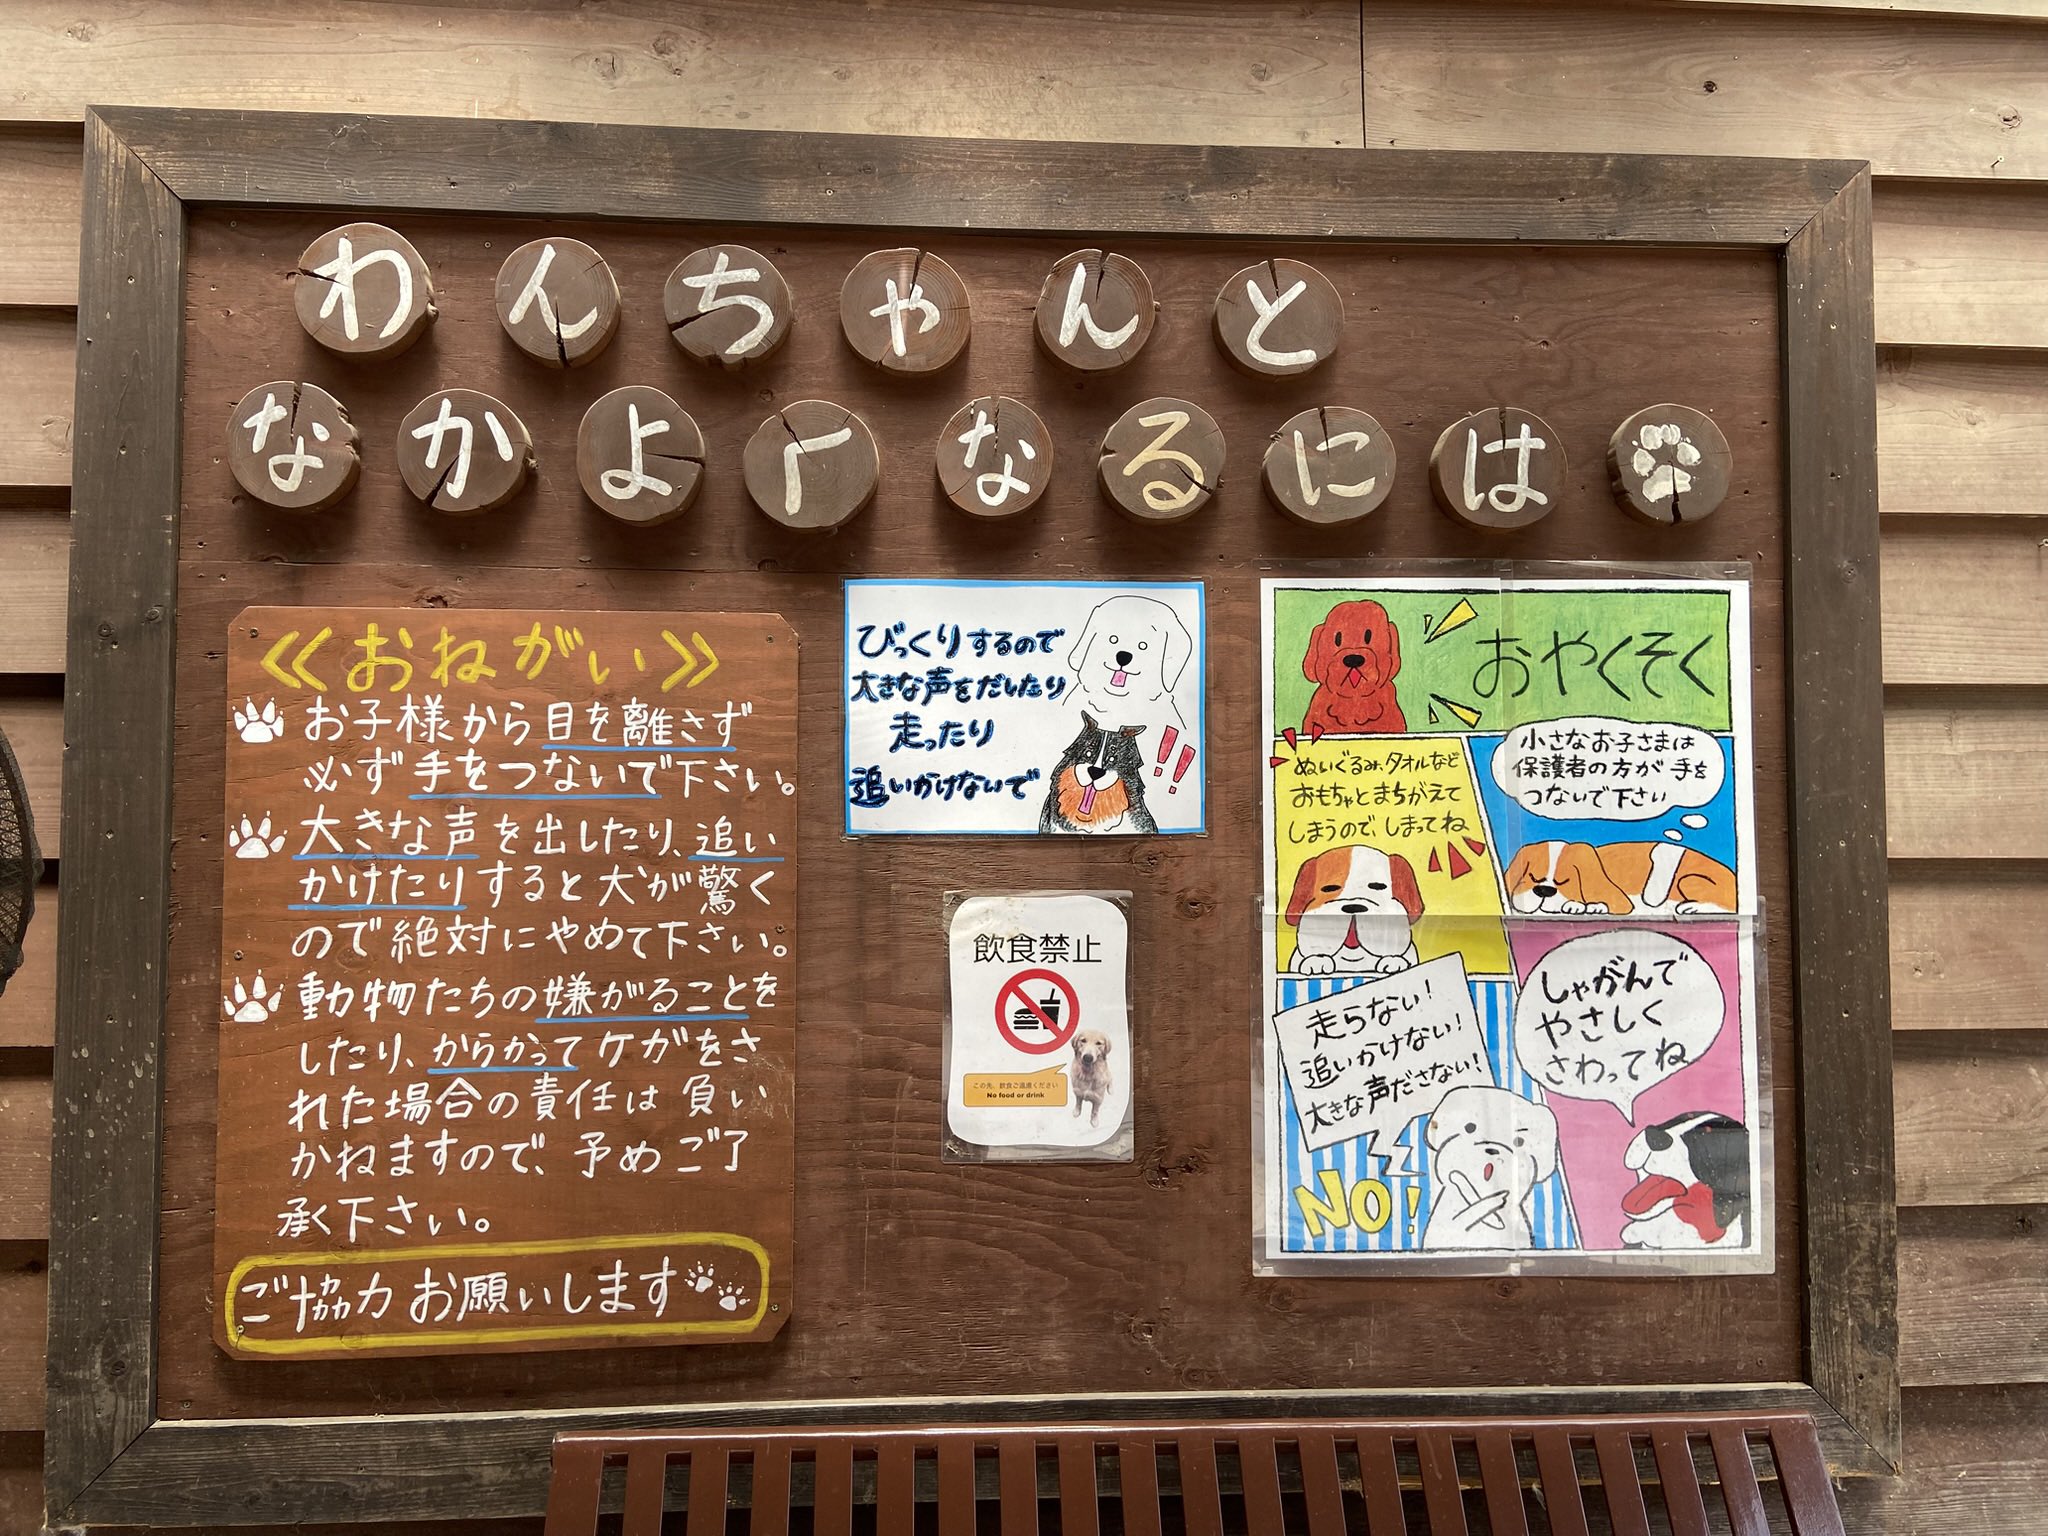 わんちゃんと
なかよくなるには
≪おねがい≫
お子様から目を離さず
必ず手をつないで下さい。
大きな声を出したり、追い
かけたりすると犬が驚く
ので絶対にやめて下さい。
動物たちの嫌がることを
したり、からかってケガをさ
れた場合の責任は負い
かねますので、予めご了
承く下さい。
ご協力お願いします
びっくりするので
大きな声をだしたり
走ったり
追いかけないで
!!
飲食禁止
この先、飲食ご遠慮ください
No food or drink
おやくそく
ぬいぐるみ、タオルなど
おもちゃとまちがえて
しまうので、しまってね
小さなお子さまは
保護者の方が手を
つないで下さい
走らない!
追いかけない!
大きな声ださない!
NO!
しゃがんで
やさしく
さわってね